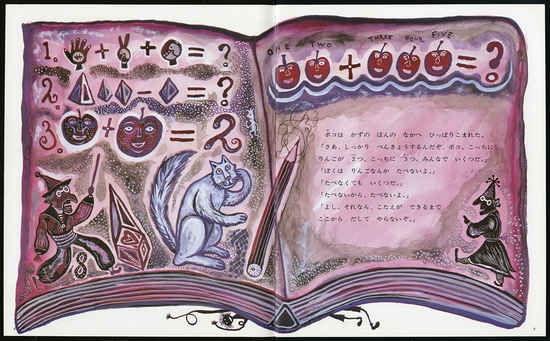 1. + + = ?
2. - = ?
3. + = 2
ONE TWO THREE FOUR FIVE
+ = ?
ポコは かずの ほんの なかへ ひっぱりこまれた。
「さあ、しっかり べんきょうするんだぞ、ポコ。こっちに
りんごが 2つ、こっちに 3つ。みんなで いくつだ。」
「ぼくは りんごなんか たべないよ。」
「たべなくても いくつだ。」
「たべないから、たべないよ。」
「よし、それなら、こたえが できるまで
ここから だして やらないぞ。」